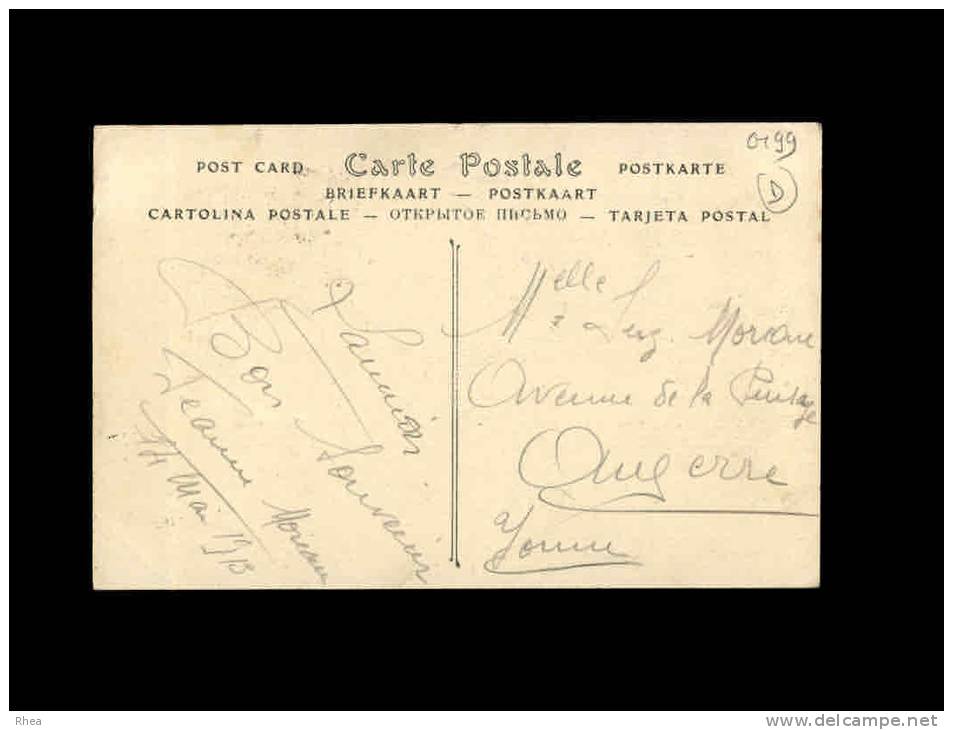 0199
D
POST CARD Carte Postale POSTKARTE
BRIEFKAART — POSTKAART
CARTOLINA POSTALE — ОТКРЫТОЕ ПИСЬМО — TARJETA POSTAL
Lannion
Bon Souvenir
Jeanne Moreau
14 Mai 1913
Melle
Moreau
Avenue de la Puisaye
Auxerre
Yonne
Rhea
www.delcampe.net